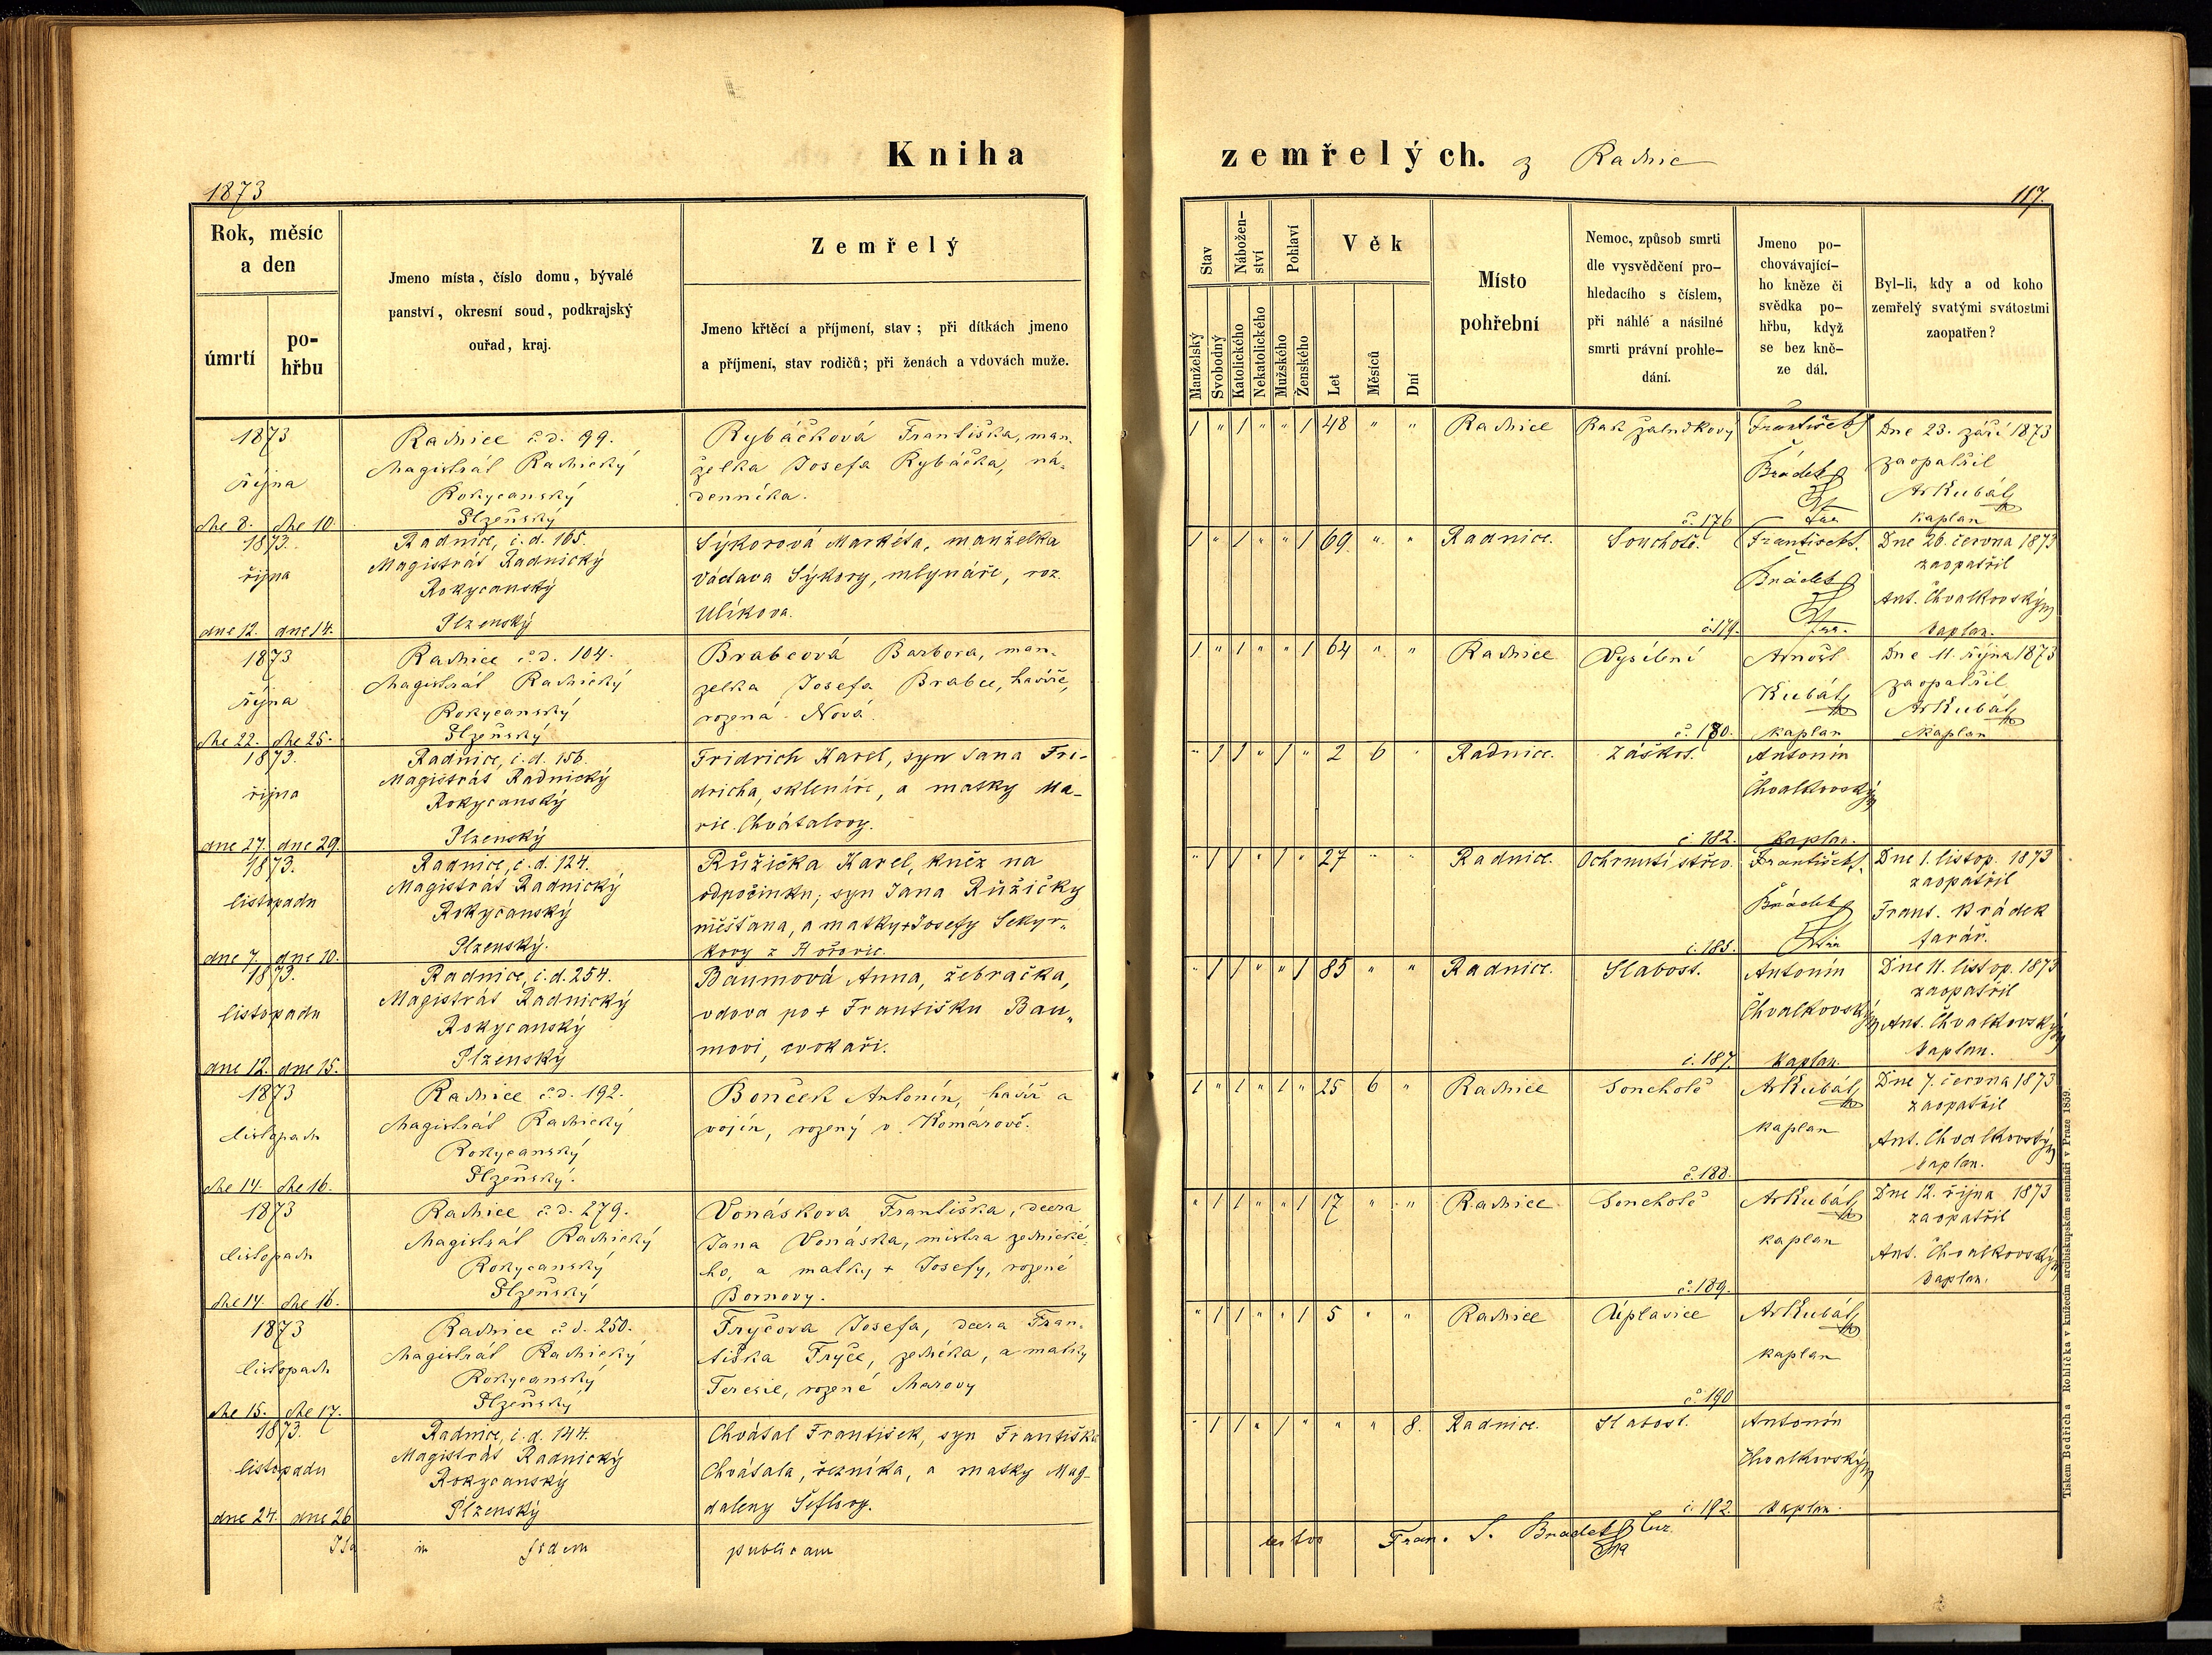 Kniha zemřelých. z Radnic
1873
117.
Rok, měsíc
a den
úmrtí
po-
hřbu
Jmeno místa, číslo domu, bývalé
panství, okresní soud, podkrajský
ouřad, kraj.
Zemřelý
Jmeno křtěcí a příjmení, stav; při dítkách jmeno
a příjmení, stav rodičů; při ženách a vdovách muže.
Stav
Manželský
Svobodný
Nábožen-
ství
Katolického
Nekatolického
Pohlaví
Mužského
Ženského
Věk
Let
Měsíců
Dní
Místo
pohřební
Nemoc, způsob smrti
dle vysvědčení pro-
hledacího s číslem,
při náhlé a násilné
smrti právní prohle-
dání.
Jmeno po-
chovávající-
ho kněze či
svědka po-
hřbu, když
se bez kně-
ze dál.
Byl-li, kdy a od koho
zemřelý svatými svátostmi
zaopatřen?
1873
října
dne 8. dne 10.
Radnice č.d. 99.
Magistrát Radnický
Rokycanský
Plzeňský
Rybáčková Františka, man-
želka Josefa Rybáčka, ná-
denníka.
1 " 1 " " 1 48 " " Radnice
Rak žaludkový
č. 176
František
Brádek
Dne 23. září 1873
zaopatřil
ArKubát
kaplan
1873.
října
dne 12. dne 14.
Radnice, č.d. 165.
Magistrát Radnický
Rokycanský
Plzenský
Sýkorová Markéta, manželka
Václava Sýkory, mlynáře, roz.
Ulíkova.
1 " 1 " " 1 69 " " Radnice.
Souchotě.
č. 179.
František
Brádek
Dne 26. června 1873
zaopatřil
Ant. Chvalkovský
kaplan.
1873
října
dne 22. dne 25.
Radnice č.d. 104.
Magistrát Radnický
Rokycanský
Plzeňský
Brabcová Barbora, man-
želka Josefa Brabce, havíře,
rozená Nová.
1 " 1 " " 1 64 " " Radnice
Vysílení
č. 180.
Arnošt
Kubát
kaplan
Dne 11. října 1873
zaopatřil
ArKubát
kaplan
1873.
října
dne 27. dne 29.
Radnice, č.d. 156.
Magistrát Radnický
Rokycanský
Plzenský
Fridrich Karel, syn Jana Fri-
dricha, skleníře, a matky Ma-
rie Chvátalovy.
" 1 1 " 1 " 2 6 " Radnice.
Záškrt.
č. 182.
Antonín
Chvalkovský
kaplan.
1873.
listopadu
dne 7. dne 10.
Radnice, č.d. 124.
Magistrát Radnický
Rokycanský
Plzenský.
Růžička Karel, kněz na
odpočinku; syn Jana Růžičky
měšťana, a matky + Josefy Sekyr-
kovy z Hořovic.
" 1 1 " 1 " 27 " " Radnice.
Ochrnutí střev.
č. 185.
František
Brádek
Dne 1. listop. 1873
zaopatřil
Frant. Brádek
farář.
1873.
listopadu
dne 12. dne 15.
Radnice, č.d. 254.
Magistrát Radnický
Rokycanský
Plzenský
Baumová Anna, žebračka,
vdova po + Františku Bau-
movi, cvokaři.
" 1 1 " " 1 85 " " Radnice.
Slabost.
č. 187.
Antonín
Chvalkovský
kaplan.
Dne 11. listop. 1873
zaopatřil
Ant. Chvalkovský
kaplan.
1873
listopadu
dne 14. dne 16.
Radnice č.d. 192.
Magistrát Radnický
Rokycanský
Plzeňský.
Bonček Antonín, havíř a
vojín, rozený v Komárově.
1 " 1 " 1 " 25 6 " Radnice
Souchotě
č. 188.
ArKubát
kaplan
Dne 7. června 1873
zaopatřil
Ant. Chvalkovský
kaplan.
1873
listopadu
dne 14. dne 16.
Radnice č.d. 279.
Magistrát Radnický
Rokycanský
Plzeňský
Vonáskova Františka, dcera
Jana Vonáska, mistra zednické-
ho, a matky + Josefy, rozené
Bornovy.
" 1 1 " " 1 17 " " Radnice
Souchotě
č. 189.
ArKubát
kaplan
Dne 12. října 1873
zaopatřil
Ant. Chvalkovský
kaplan.
1873
listopadu
dne 15. dne 17.
Radnice č.d. 250.
Magistrát Radnický
Rokycanský
Plzeňský
Fryčova Josefa, dcera Fran-
tiška Fryče, zedníka, a matky
Teresie, rozené Marovy
" 1 1 " " 1 5 " " Radnice
Úplavice
č. 190
ArKubát
kaplan
1873.
listopadu
dne 24. dne 26
Radnice, č.d. 144.
Magistrát Radnický
Rokycanský
Plzenský
Chvátal František, syn Františka
Chvátala, řezníka, a matky Mag-
daleny Šeflovy.
" 1 1 " 1 " " " 8. Radnice.
Slabost.
č. 192.
Antonín
Chvalkovský
kaplan.
Ita in fidem publicam testor Fran. S. Bradek
Tiskem Bedřicha Rohlíčka v knížecím arcibiskupském semináři v Praze 1859.